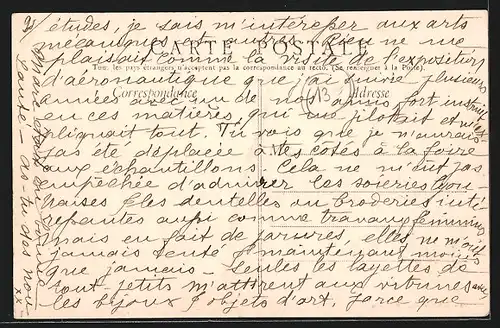 études, je sais m'intéresser aux arts
mécaniques et autres. Rien ne me
CARTE POSTALE
plaisait comme la visite de l'exposition
Tous les pays étrangers n'acceptent pas la correspondance au recto. (Se renseigner à la Poste).
d'aéronautique que j'ai suivie plusieurs
Correspondance
Adresse
années avec un de nos amis fort instruit
en ces matières, qui me pilotait et m'ex
pliquait tout. Tu vois que je n'aurais
pas été déplacée à tes côtés à la foire
aux échantillons. Cela ne m'eût pas
empêchée d'admirer les soieries lyon-
naises et les dentelles ou broderies inté-
ressantes aussi comme travaux féminins
mais en fait de parures, elles ne m'ont
jamais tenté & maintenant moins
que jamais - Seules les layettes de
tout-petits m'attirent aux vitrines avec
les bijoux & objets d'art, parce que